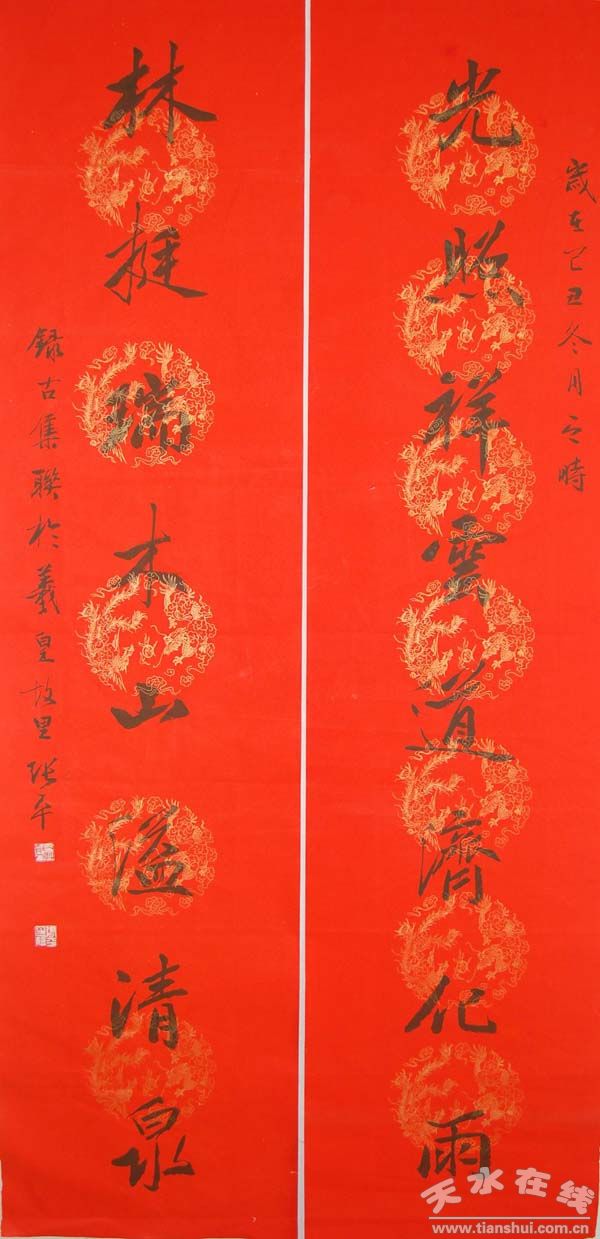 歲在己丑冬月之時
光照祥雲道濟化雨
林挺瑞木山溢清泉
録古集聯於羲皇故里張平
天水在线
www.tianshui.com.cn